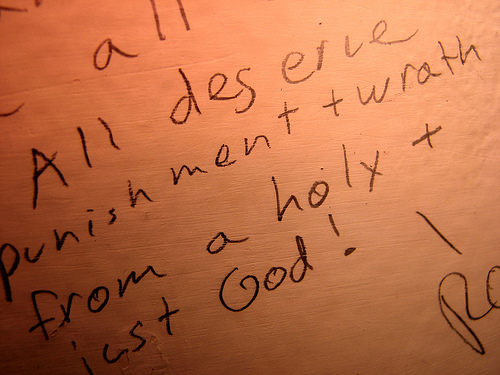 a all
All deserve
punishment + wrath
from a holy +
just God!